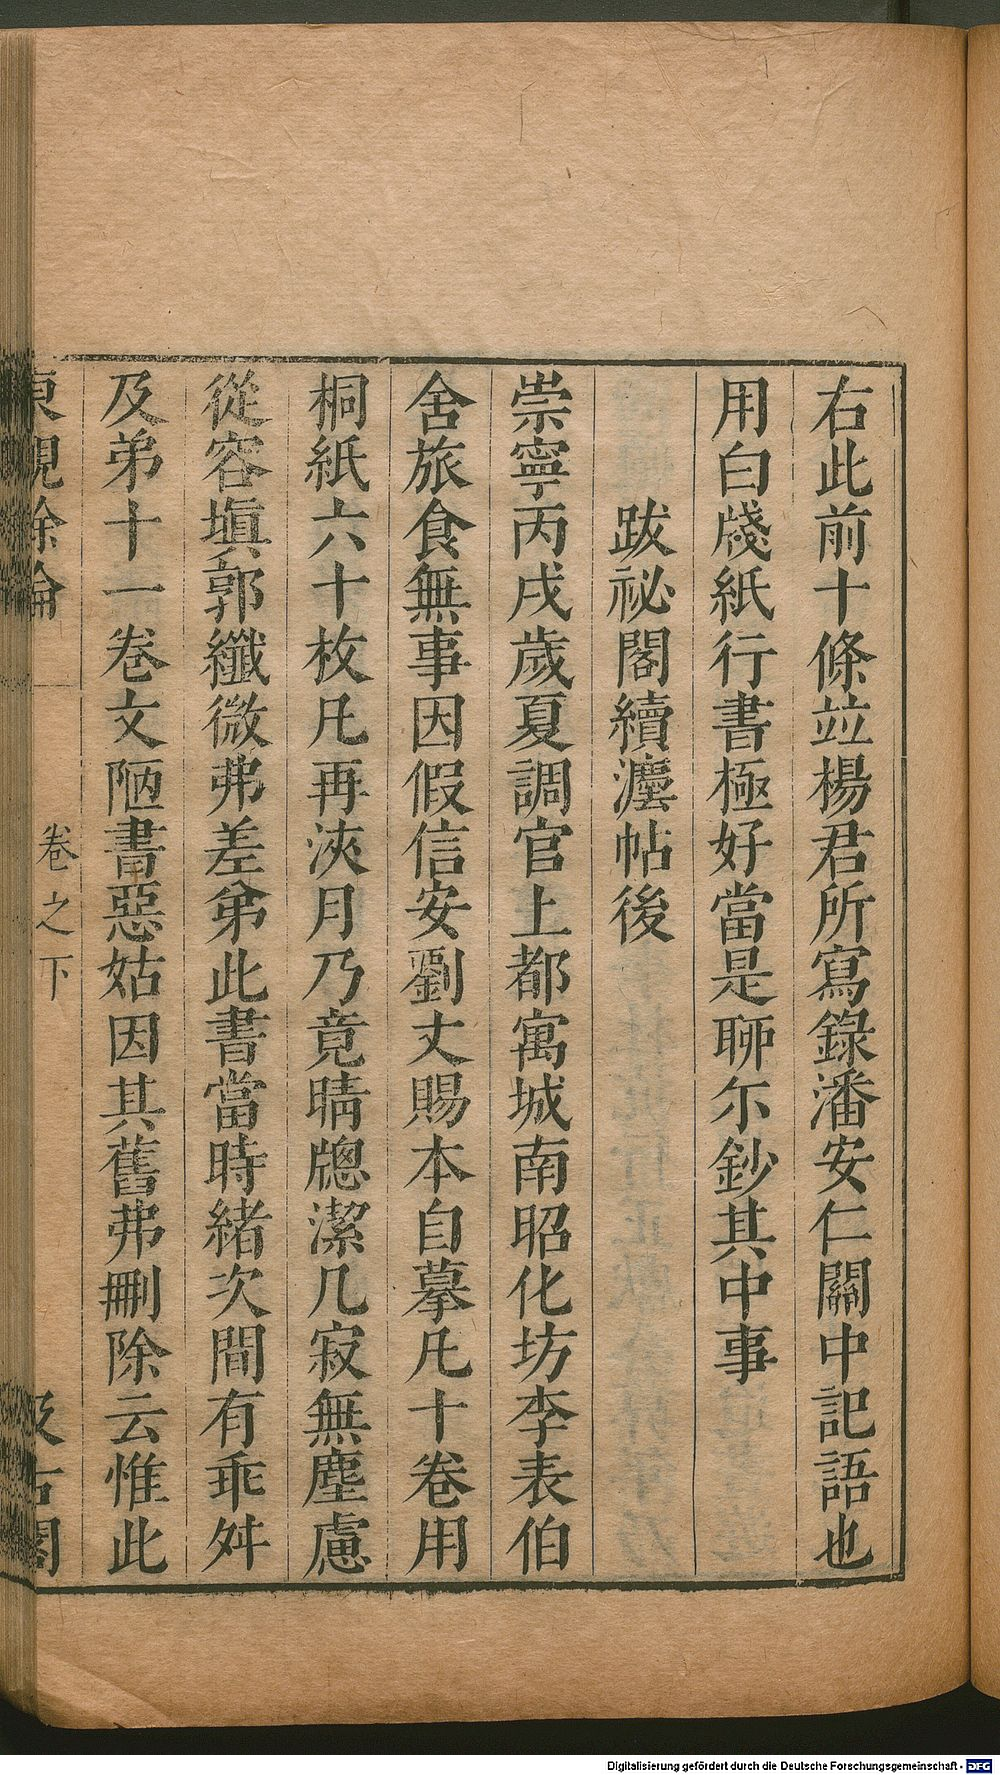 右此前十條竝楊君所寫錄潘安仁關中記語也
用白牋紙行書極好當是聊尒鈔其中事
跋祕閣續灋帖後
崇寧丙戌歲夏調官上都寓城南昭化坊李表伯
舍旅食無事因假信安劉丈賜本自摹凡十卷用
桐紙六十枚凡再浹月乃竟晴牕潔几寂無塵慮
從容塡郭纖微弗差弟此書當時緒次間有乖舛
及弟十一卷文陋書惡姑因其舊弗刪除云惟此
東觀餘論 卷之下 汲古閣
Digitalisierung gefördert durch die Deutsche Forschungsgemeinschaft - DFG